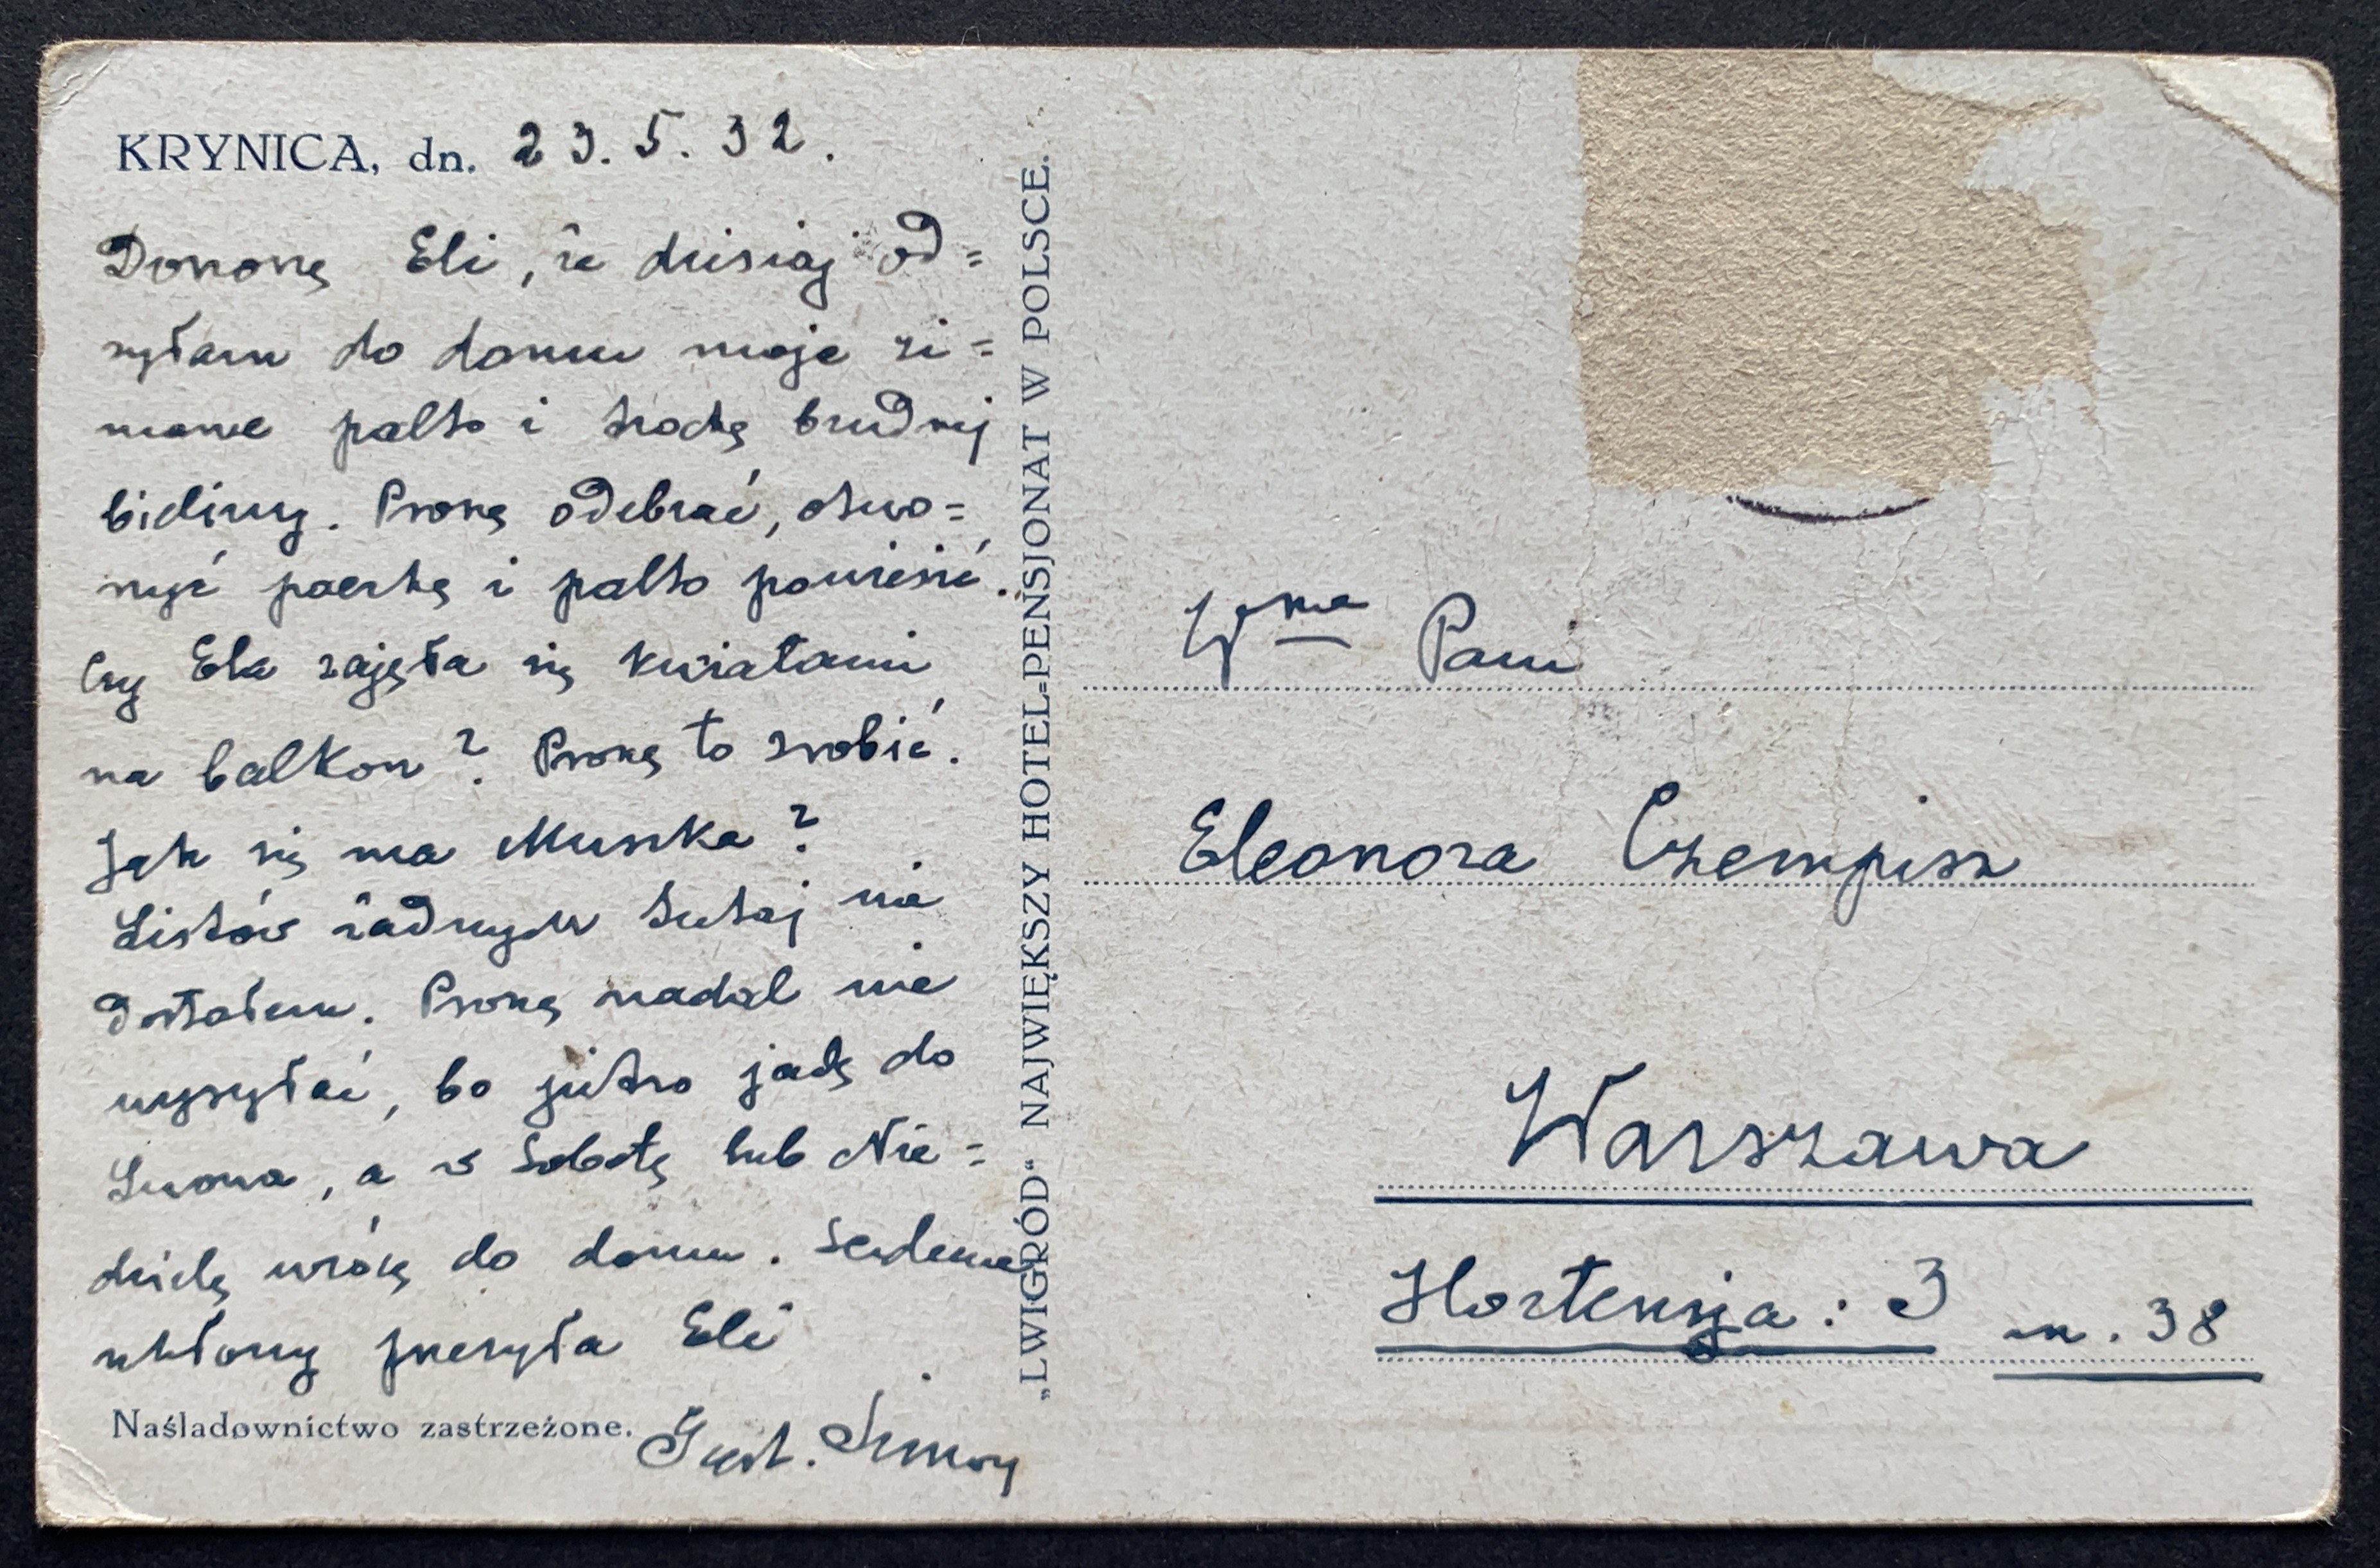 KRYNICA, dn. 23. 5. 32.
Donoszę Eli, że dzisiaj od=
syłam do domu moje zi=
mowe palto i trochę brudnej
bielizny. Proszę odebrać, otwo=
rzyć paczkę i palto powiesić.
Czy Ela zajęła się kwiatami
na balkon? Proszę to zrobić.
Jak się ma Muszka?
Listów żadnych tutaj nie
dostałem. Proszę nadal nie
wysyłać, bo jutro jadę do
Lwowa, a w Sobotę lub Nie=
dzielę wrócę do domu. Serdeczne
ukłony przesyła Eli
Naśladownictwo zastrzeżone.
„LWIGRÓD“ NAJWIĘKSZY HOTEL=PENSJONAT W POLSCE.
Wma Pani
Eleonora Czempisz
Warszawa
Hortensja: 3 m. 38